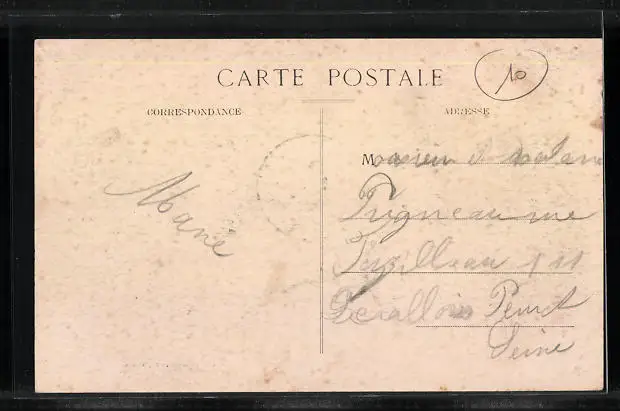 CARTE POSTALE
10
CORRESPONDANCE
ADRESSE
Marie
Monsieur et Madame
Pigneau rue
11
Levallois Perret
Seine